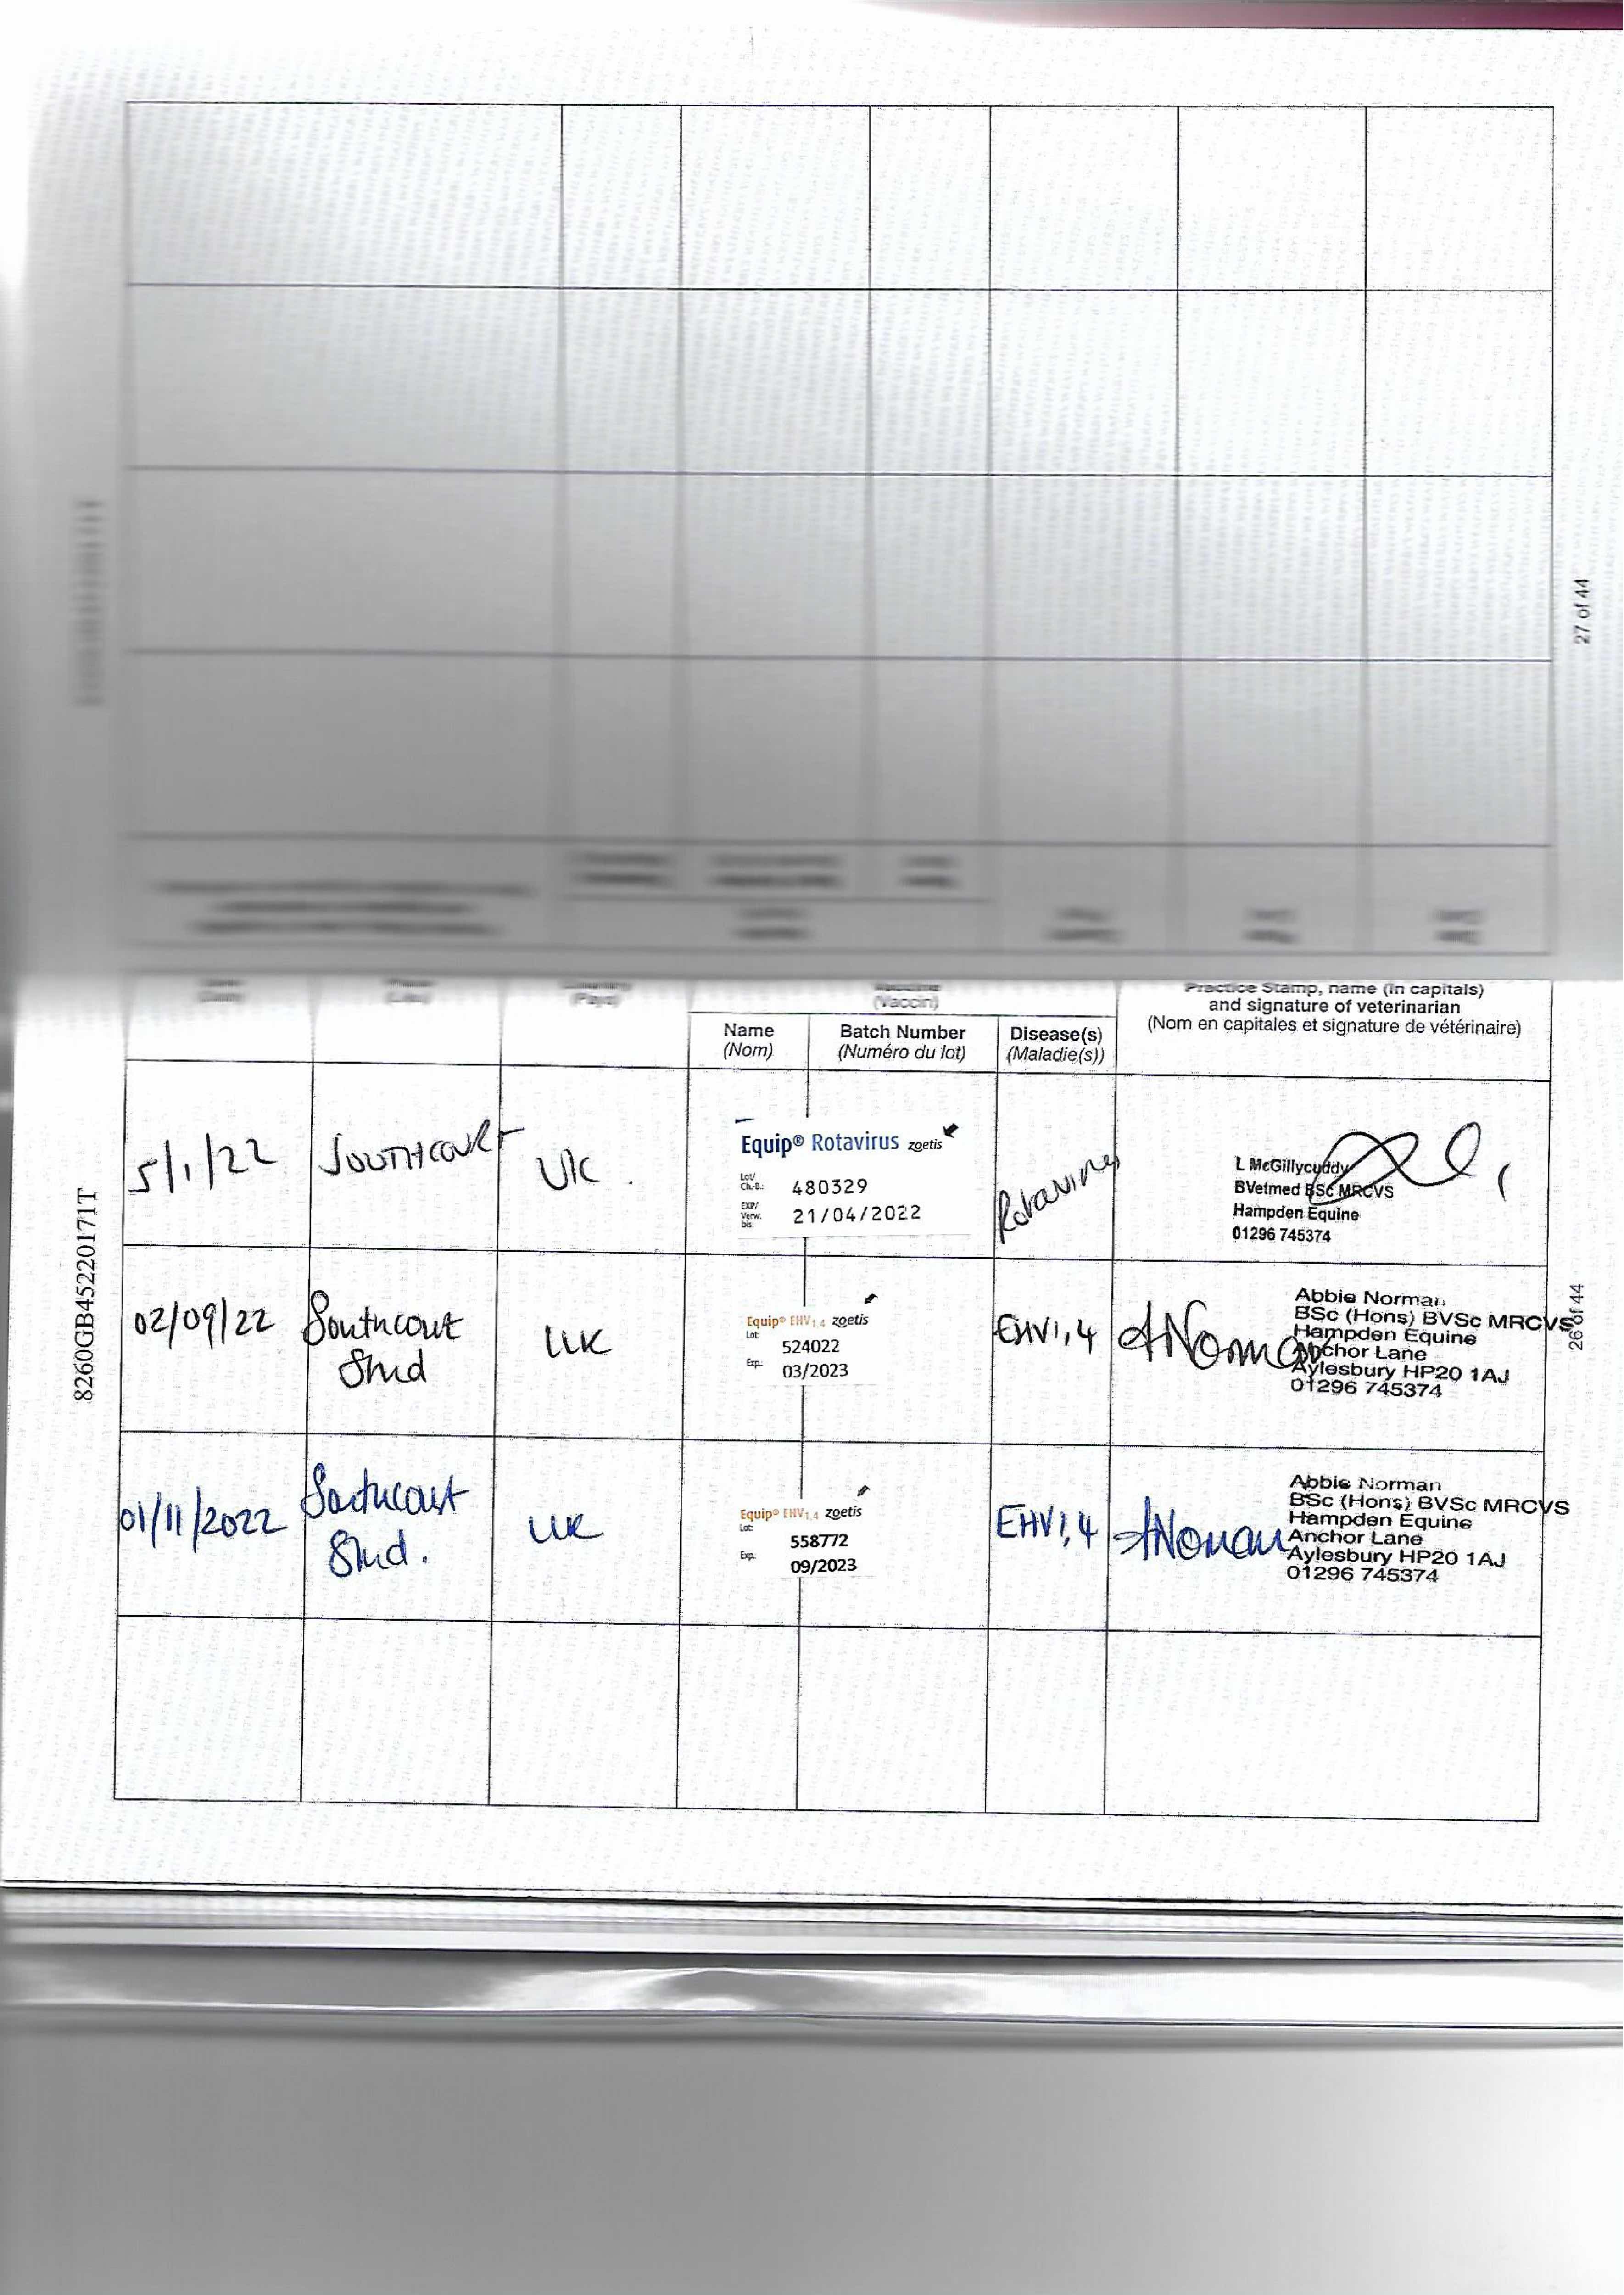 27 of 44
(Vaccin)
Practice Stamp, name (in capitals)
and signature of veterinarian
(Nom en capitales et signature de vétérinaire)
Name
(Nom)
Batch Number
(Numéro du lot)
Disease(s)
(Maladie(s))
5/1/22
SOUTHCOURT
UK.
Equip® Rotavirus zoetis
Lot/
Ch.-B.: 480329
EXP/
Verw.
bis: 21/04/2022
L McGillycuddy
BVetmed BSc MRCVS
Hampden Equine
01296 745374
02/09/22
Southcourt
Stud
UK
Equip® EHV1,4 zoetis
Lot:
524022
Exp:
03/2023
EHV1,4
ANorman
Abbie Norman
BSc (Hons) BVSc MRCVS
Hampden Equine
Anchor Lane
Aylesbury HP20 1AJ
01296 745374
01/11/2022
Southcourt
Stud.
UK
Equip® EHV1,4 zoetis
Lot:
558772
Exp.
09/2023
EHV1,4
ANorman
Abbie Norman
BSc (Hons) BVSc MRCVS
Hampden Equine
Anchor Lane
Aylesbury HP20 1AJ
01296 745374
8260GB45220171T
26 of 44